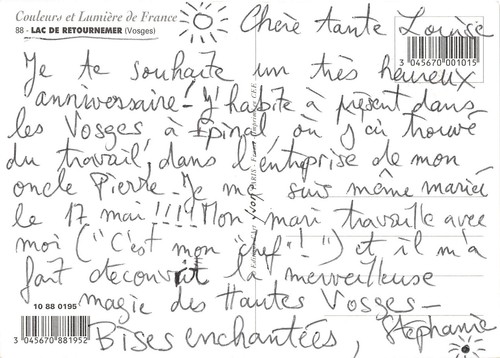 Couleurs et Lumière de France
88 - LAC DE RETOURNEMER (Vosges)
Chère tante Louise
3 045670 001015
Je te souhaite un très heureux
anniversaire! J'habite à présent dans
les Vosges à Epinal où j'ai trouvé
du travail, dans l'entreprise de mon
oncle Pierre. Je me suis même mariée
le 17 mai!!!! Mon mari travaille avec
moi ("C'est mon "chef"!") et il m'a
fait découvrir la merveilleuse
magie des Hautes Vosges-
Bises enchantées, Stéphanie
10 88 0195
3 045670 881952